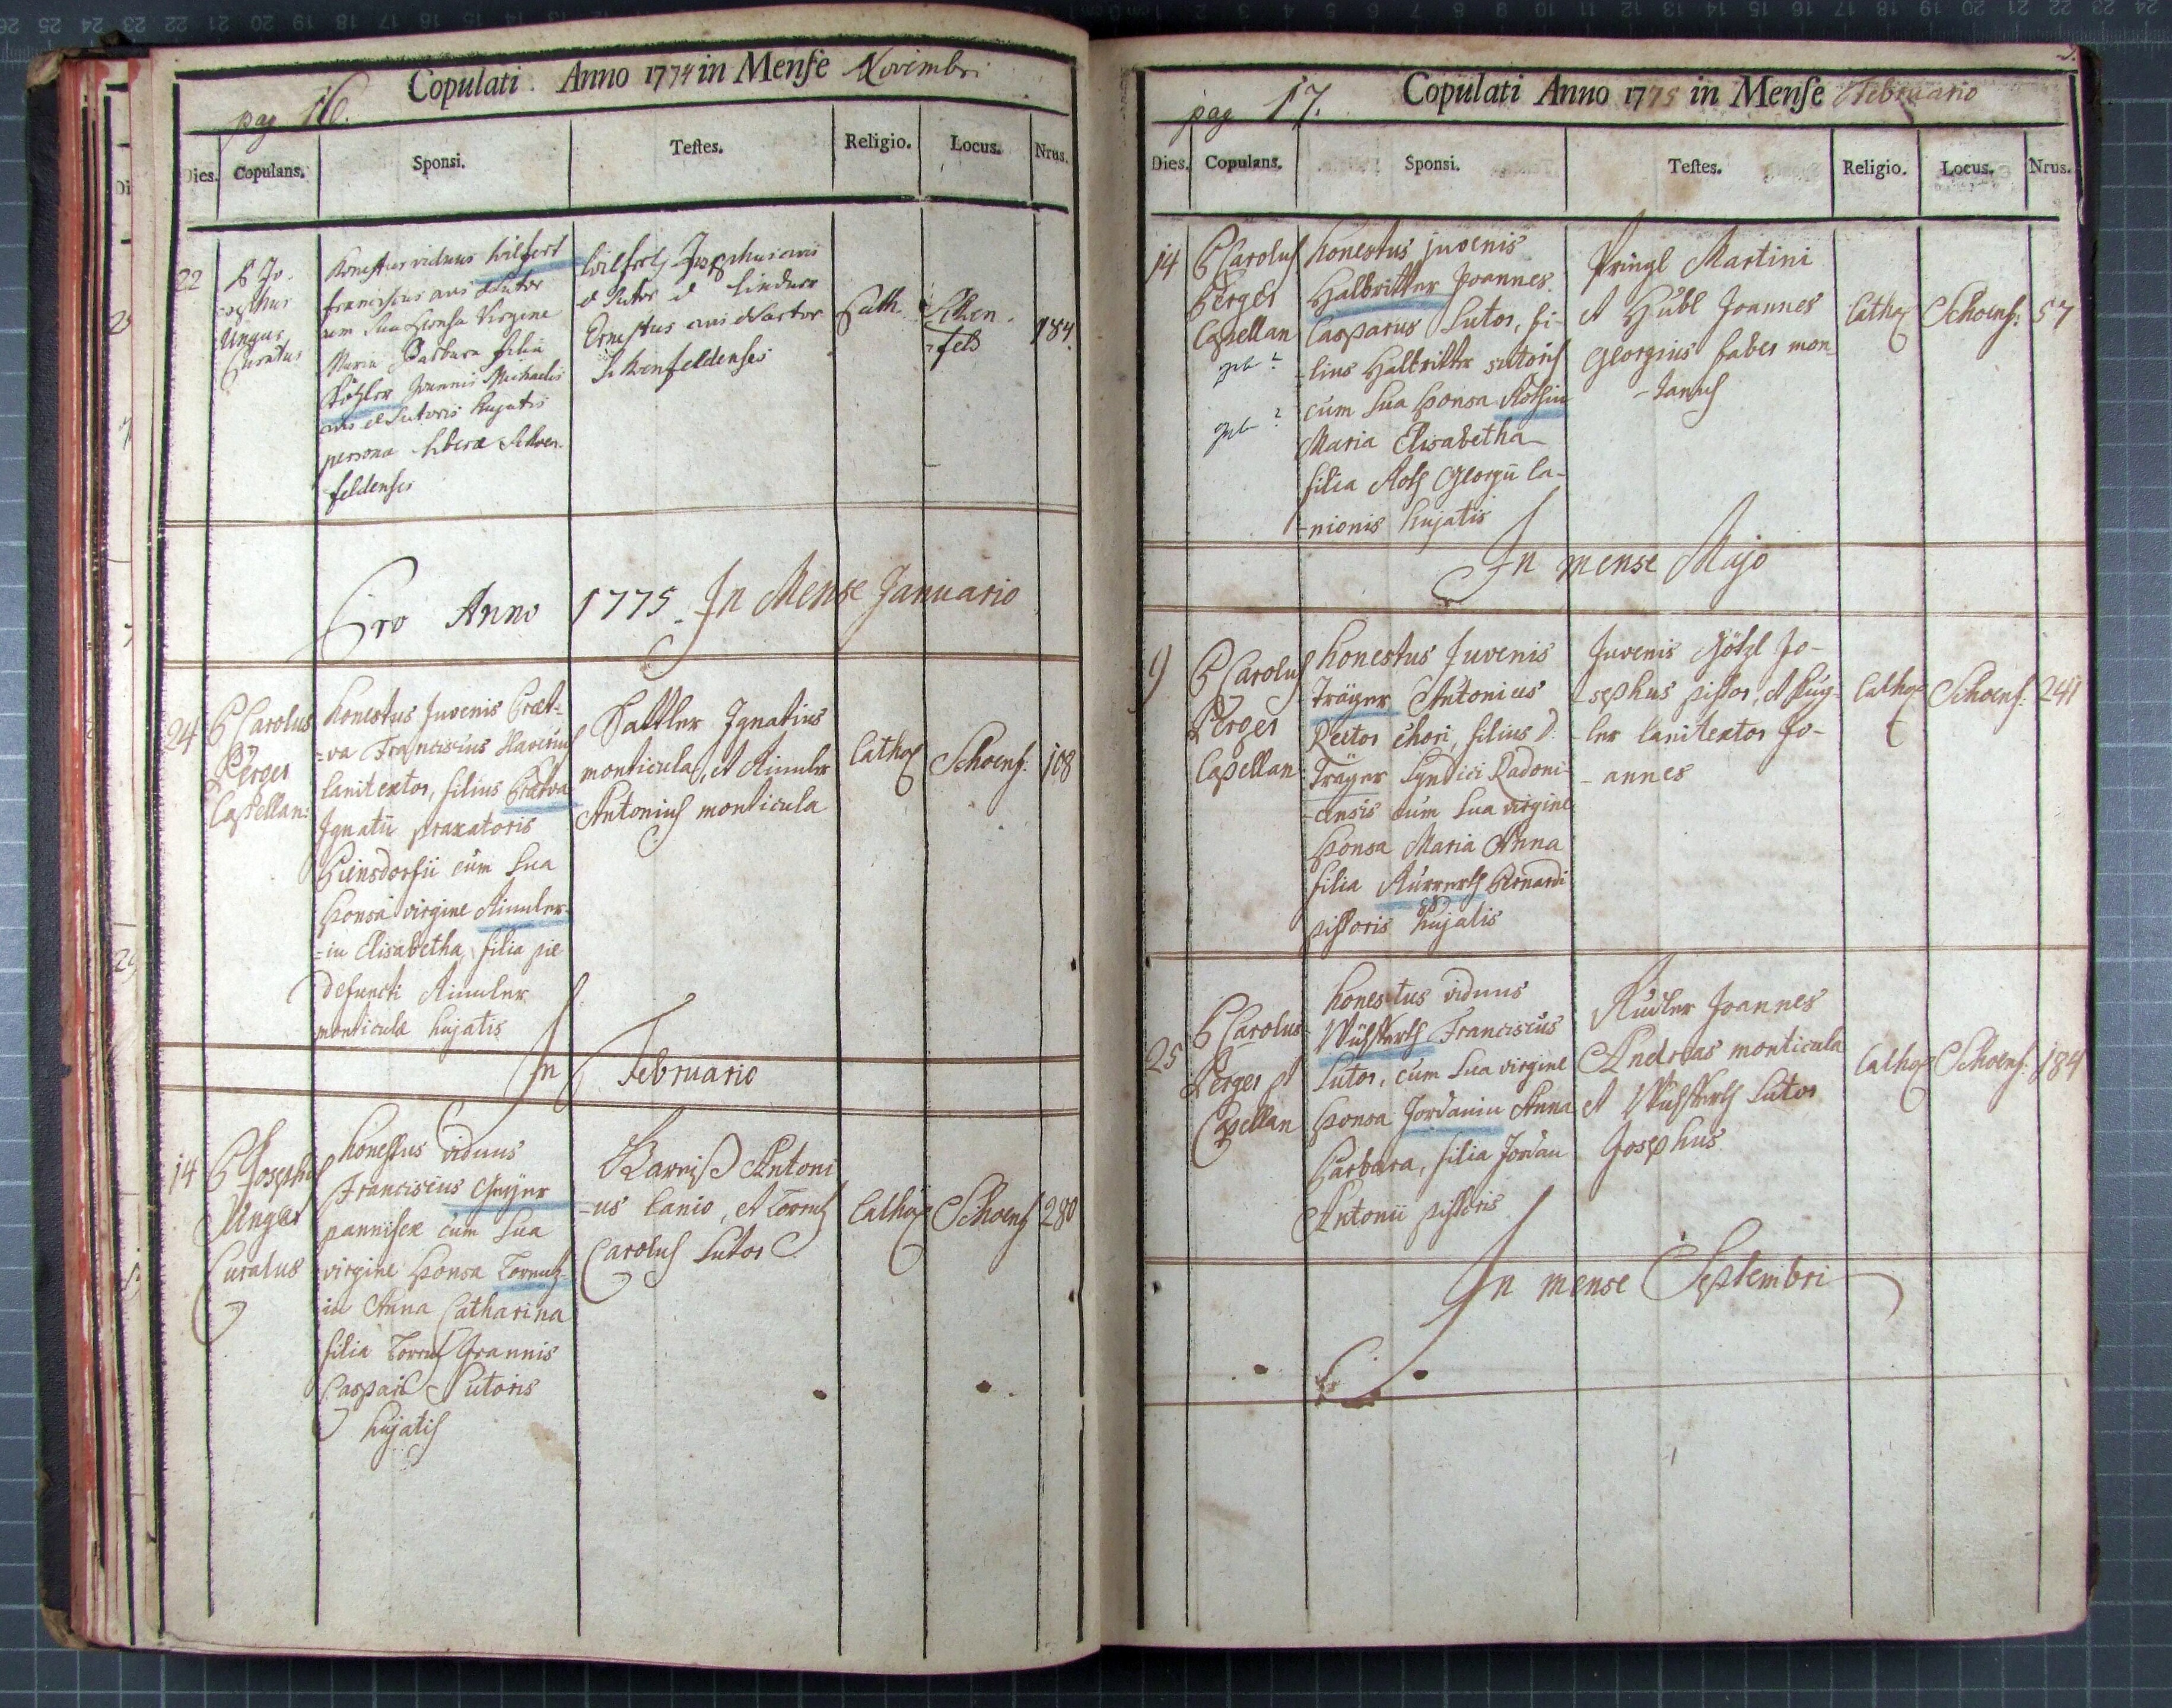 Copulati Anno 1774 in Mense Novembri
pag 16.
Dies. Copulans. Sponsi. Testes. Religio. Locus. Nrus.
22
P. Jo-
-sephus
Ungar
Curatus
Honestus viduus Wilfert
Franciscus civis et Sutor
cum Sua Sponsa Virgine
Maria Barbara filia
Joannis Michaelis
civis et Sutoris hujatis
persona libera Schoen-
feldensis
Wilfert Josephus civis
et Sutor et Lindner
Ernestus civis et Sartor
Schoenfeldensis
Cath.
Schoen-
-feld
184.
Pro Anno 1775. In Mense Januario
24
P Carolus
Perger
Capellan:
Honestus Juvenis Præt-
-va Franciscus Xaverius
lanitextor, filius Prætva
Ignatii praxatoris
cum Sua
Sponsa virgine
-in Elisabetha, filia pie
defuncti
monticulæ hujatis
Sattler Ignatius
monticula, et
Antonius monticula
Cathol
Schoenf:
108
In Februario
14
P Josephus
Ungar
Curatus
honestus viduus
Franciscus Geyer
pannifex cum Sua
virgine Sponsa
in Anna Catharina
filia Joannis
Caspari Sutoris
hujatis
Antoni
-us lanio, et
Carolus Sutor
Cathol
Schoenf
280
Copulati Anno 1775 in Mense Februario
pag 17.
Dies. Copulans. Sponsi. Testes. Religio. Locus. Nrus.
14
P Carolus
Perger
Capellan
geb ?
geb ?
honestus juvenis
Halbritter Joannes
Casparus Sutor, fi-
-lius Halbritter sutoris
cum Sua Sponsa Rothin
Maria Elisabetha
filia Roth Georgii la-
-nionis hujatis
Pringl Martini
et Hübl Joannes
Georgius faber mon-
-tanus
Cathol
Schoenf:
57
In mense Majo
9
P Carolus
Perger
Capellan
honestus Juvenis
Träger Antonius
Rector chori, filius D:
Träger Syndici Radoni-
-censis cum Sua virgine
Sponsa Maria Anna
filia Bernardi
pistoris hujatis
Juvenis Götzl Jo-
-sephus pistor, et Kug-
-ler lanitextor Jo-
-annes
Cathol
Schoenf:
241
25
P Carolus
Perger pt
Capellan
honestus viduus
Franciscus
Sutor, cum Sua virgine
Sponsa Jordanin Anna
Barbara, filia Jordan
Antonii pistoris
Joannes
Andreas monticula
et Sutor
Josephus
Cathol
Schoenf:
184
In mense Septembri